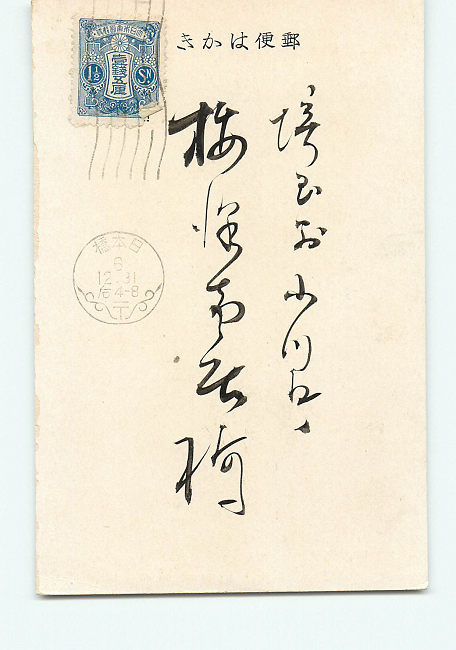 郵便はかき
大日本帝國郵便
壹錢五厘
1½ SN
埼玉縣小川町
梅澤
日本橋
6
12.31
后4-8